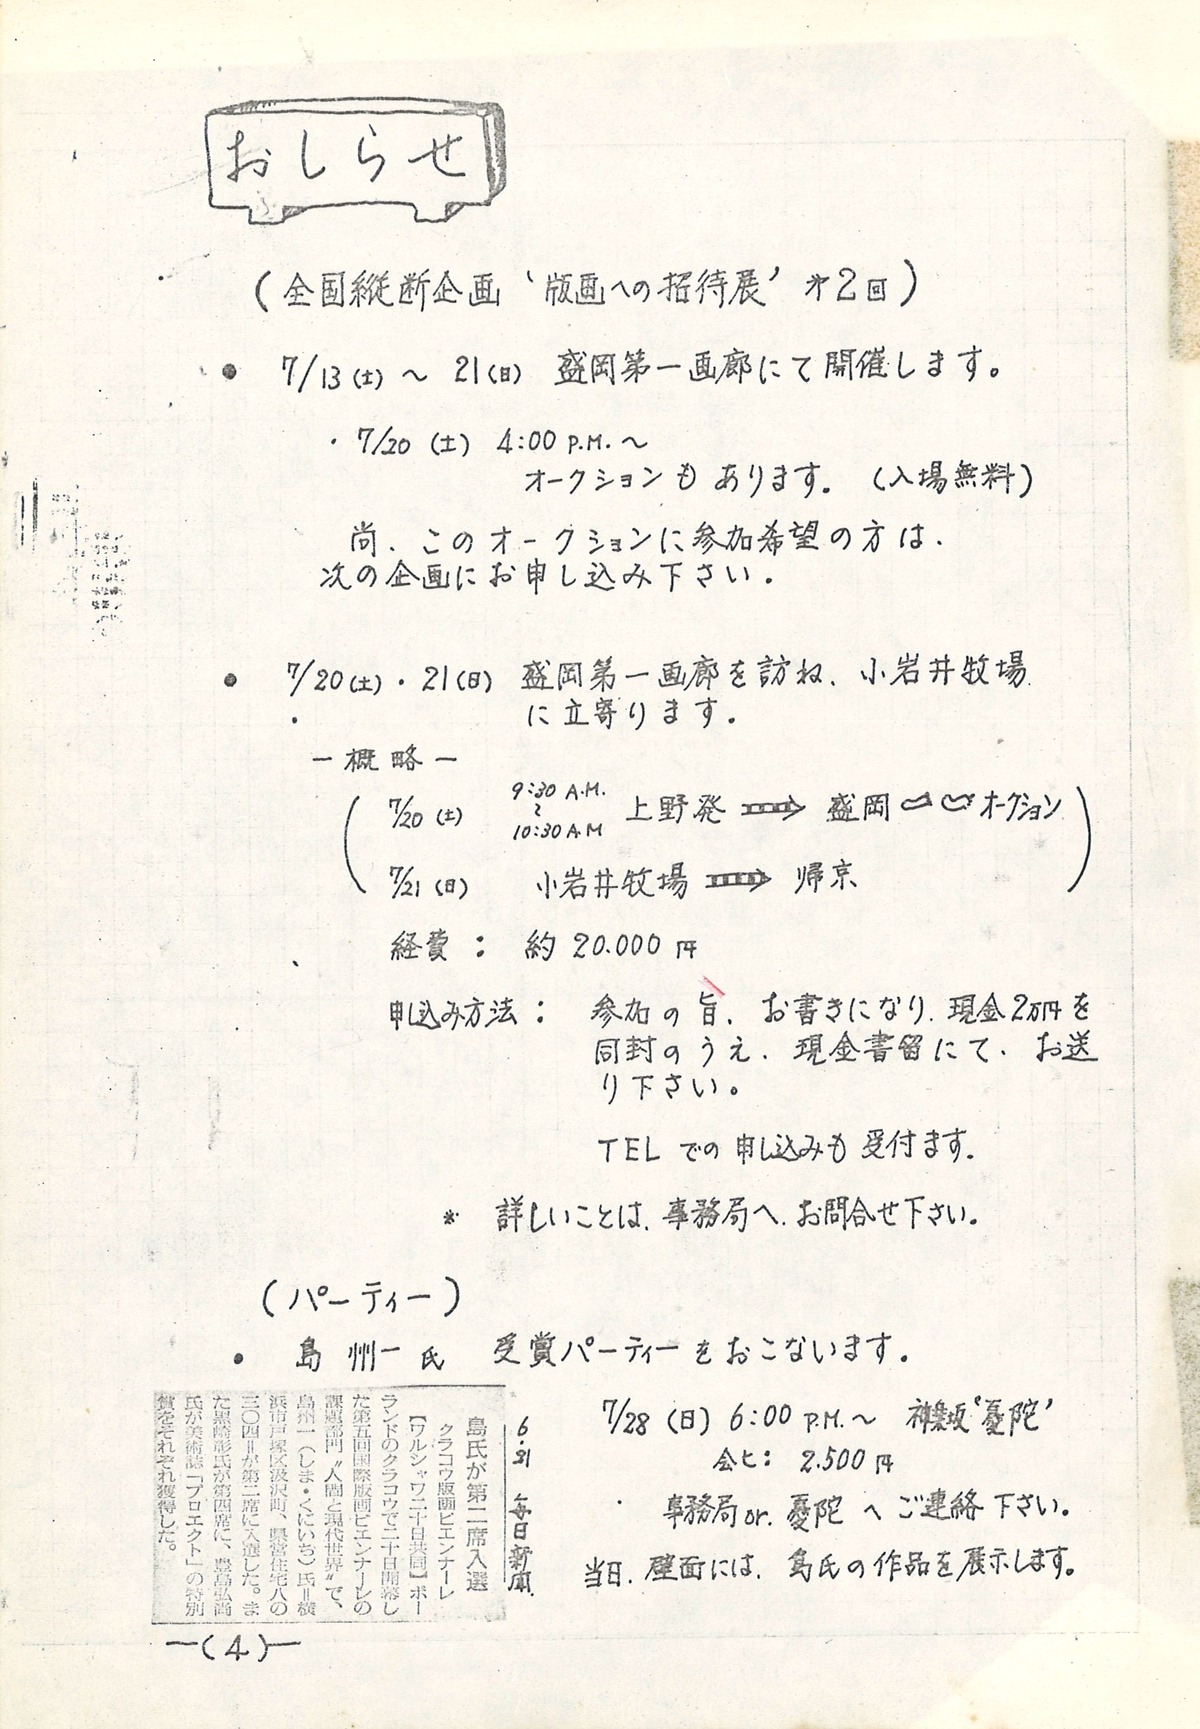 おしらせ
(全国縦断企画 '版画への招待展' 才2回)
• 7/13(土) ～ 21(日) 盛岡第一画廊にて開催します。
・7/20 (土) 4:00 P.M.～
オークションもあります。(入場無料)
尚、このオークションに参加希望の方は、
次の企画にお申し込み下さい。
• 7/20(土)・21(日) 盛岡第一画廊を訪ね、小岩井牧場
に立寄ります。
ー概略ー
7/20 (土) 9:30 A.M. ～ 10:30 A.M 上野発 ⇒ 盛岡 オークション
7/21 (日) 小岩井牧場 ⇒ 帰京
経費： 約 20.000 円
申し込み方法： 参加の旨、お書きになり、現金2万円を
同封のうえ、現金書留にて、お送
り下さい。
TEL での申し込みも受付ます。
* 詳しいことは、事務局へ、お問合せ下さい。
(パーティー)
• 島 州一 氏 受賞パーティーをおこないます。
7/28 (日) 6:00 P.M.～ 神楽坂'憂陀'
会ヒ： 2.500 円
事務局or.憂陀 へ ご連絡 下さい。
当日、壁面には、島氏の作品を展示します。
6.21 毎日新聞
島氏が第二席入選
クラコウ版画ビエンナーレ
【ワルシャワ二十日共同】ポー
ランドのクラコウで二十日開幕し
た第五回国際版画ビエンナーレの
課題部門〝人間と現代世界〟で、
島州一（しま・くにいち）氏＝横
浜市戸塚区汲沢町、県営住宅八の
三〇四＝が第二席に入選した。ま
た黒崎彰氏が第四席に、豊島弘尚
氏が美術誌「プロエクト」の特別
賞をそれぞれ獲得した。
ー(4)ー